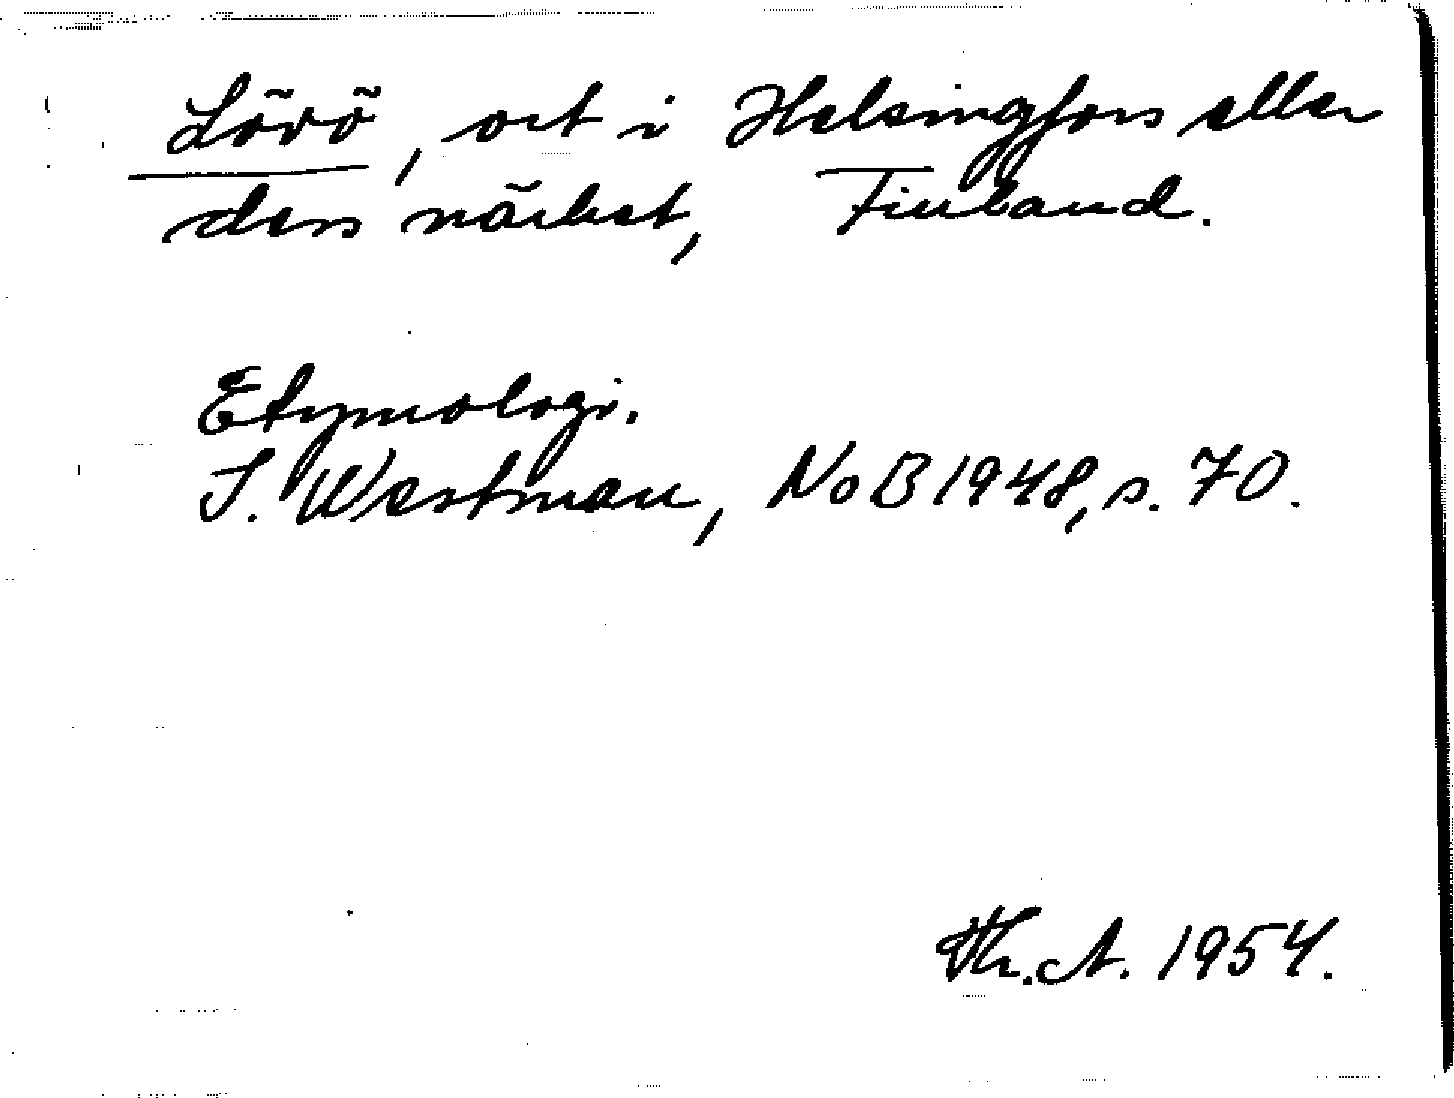 Lövö, ort i Helsingfors eller
dess närhet, Finland.
Etymologi.
I. Westman, NoB 1948, s. 70.
Th. A. 1954.